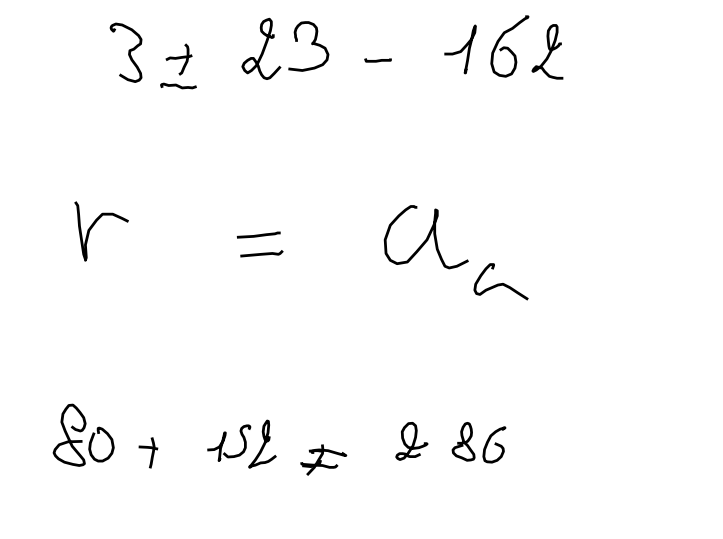 3 ± 23 - 162
r = a_c
80 + 152 ≠ 286